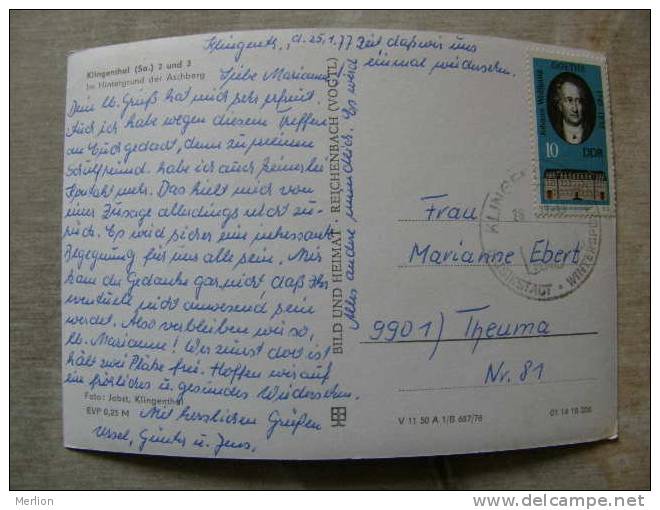 Klingenth., d. 25.1.77
Klingenthal (Sa.) 2 und 3
Im Hintergrund der Aschberg
Liebe Marianne!
Dein lb. Gruß hat mich sehr erfreut.
Auch ich habe wegen diesem Treffen
an Euch gedacht, denn zu meinen
Schulfreund. habe ich auch keinerlei
Kontakt mehr. Das hielt mich von
einer Zusage allerdings nicht zu-
rück. Es wird sicher eine interessante
Begegnung für uns alle sein. Mir
kam der Gedanke gar nicht, daß Ihr
eventuell nicht anwesend sein
werdet. Also verbleiben wir so,
lb. Marianne! Wer zuerst dort ist
hält zwei Plätze frei. Hoffen wir auf
ein fröhliches u. gesundes Wiedersehen.
Mit herzlichen Grüßen
Ursel, Günter u. Jens.
Foto: Jobst, Klingenthal
EVP 0,25 M
Alles andere mündlich. Es wird
Zeit daß wir uns
einmal wiedersehen.
BILD UND HEIMAT · REICHENBACH (VOGTL)
Johann Wolfgang
GOETHE
1749-1832
10
DDR
KLINGEN
WINTERSP
Frau
Marianne Ebert
9901) Theuma
Nr. 81
V 11 50 A 1/B 657/76
01 14 18 206
Myrlion
www.delcampe.net